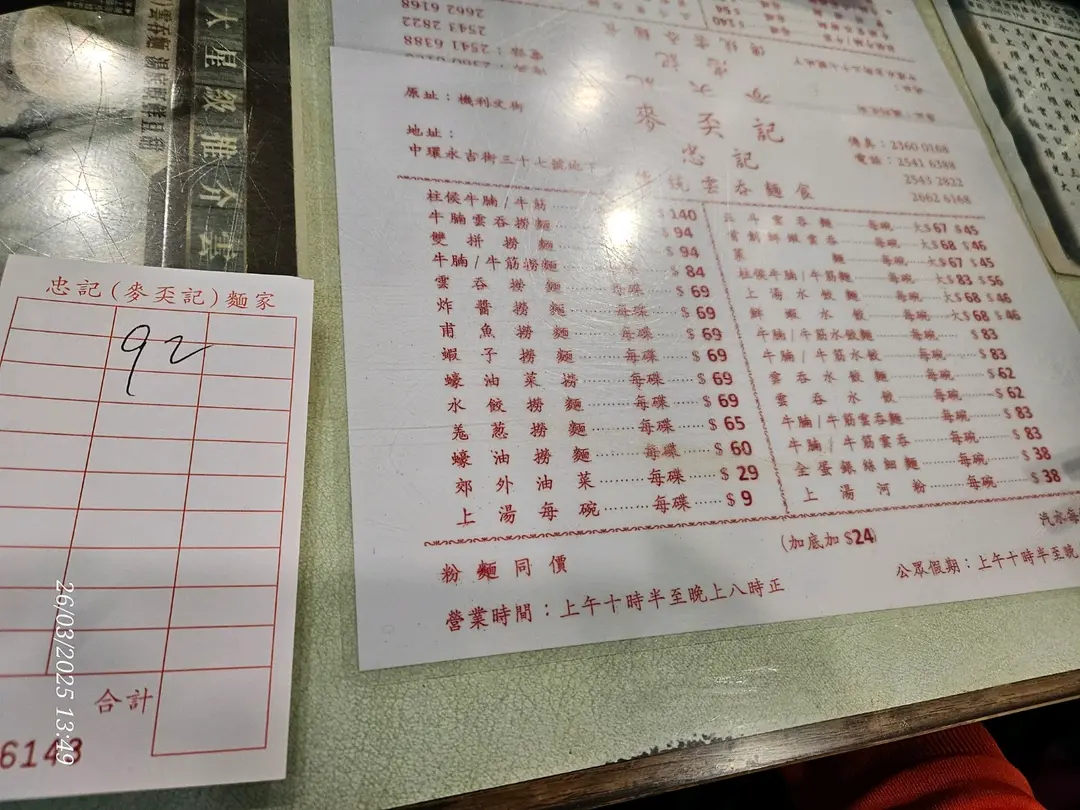 大星級推介
忠記(麥奀記)麵家
92
合計
6143
26/03/2025 13:49
2662 6168
2543 2822
2541 6388
原址：機利文街
地址：
中環永吉街三十七號地下
麥奀記
忠記
傳統雲吞麵食
傳真：2360 0168
電話：2541 6388
2543 2822
2662 6168
柱侯牛腩/牛筋 $140
牛腩雲吞撈麵 $94
雙拼撈麵 $94
牛腩/牛筋撈麵 每碟 $84
雲吞撈麵 每碟 $69
炸醬撈麵 每碟 $69
甫魚撈麵 每碟 $69
蝦子撈麵 每碟 $69
蠔油菜撈 每碟 $69
水餃撈麵 每碟 $69
羗葱撈麵 每碟 $65
蠔油撈麵 每碟 $60
郊外油菜 每碟 $29
上湯每碗 每碟 $9
雲吞麵 每碗 大$67 $45
鮮蝦雲吞 每碗 大$68 $46
麵 每碗 大$67 $45
柱侯牛腩/牛筋麵 每碗 大$83 $56
上湯水餃麵 每碗 大$68 $46
鮮蝦水餃 每碗 大$68 $46
牛腩/牛筋水餃麵 每碗 $83
牛腩/牛筋水餃 每碗 $83
雲吞水餃麵 每碗 $62
雲吞水餃 每碗 $62
牛腩/牛筋雲吞麵 每碗 $83
牛腩/牛筋雲吞 每碗 $83
全蛋銀絲細麵 每碗 $38
上湯河粉 每碗 $38
粉麵同價
(加底加$24)
汽水每
營業時間：上午十時半至晚上八時正
公眾假期：上午十時半至晚